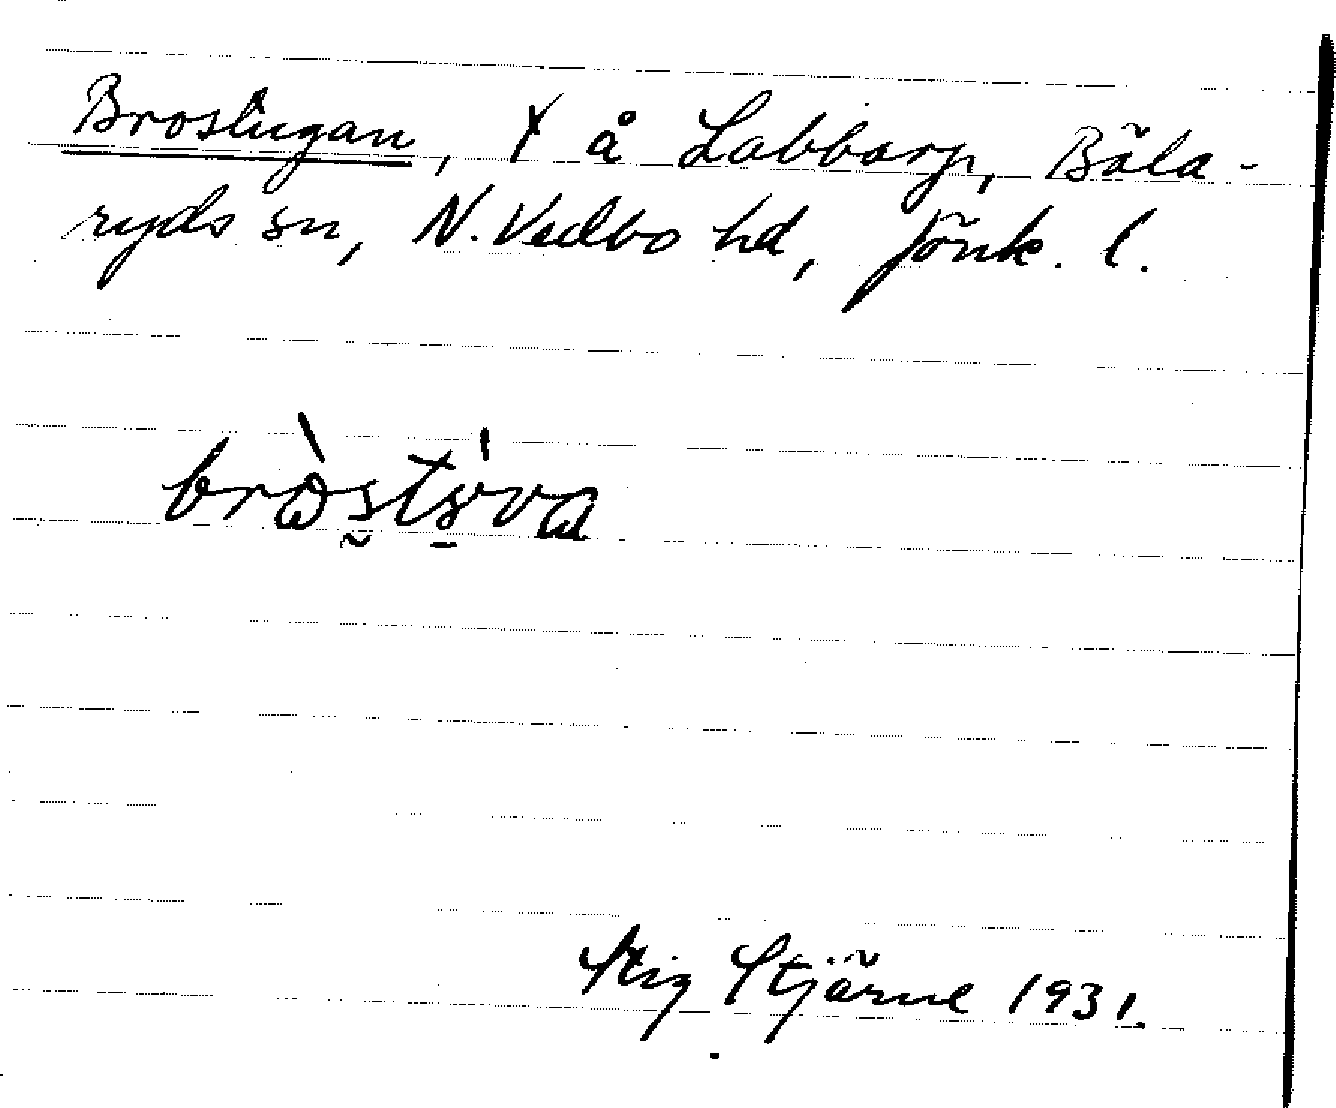 Broslugan, Ɣ å Labbarp, Bäla-
ryds sn, N. Vedbo hd, Jönk. l.
Stig Stjärne 1931.